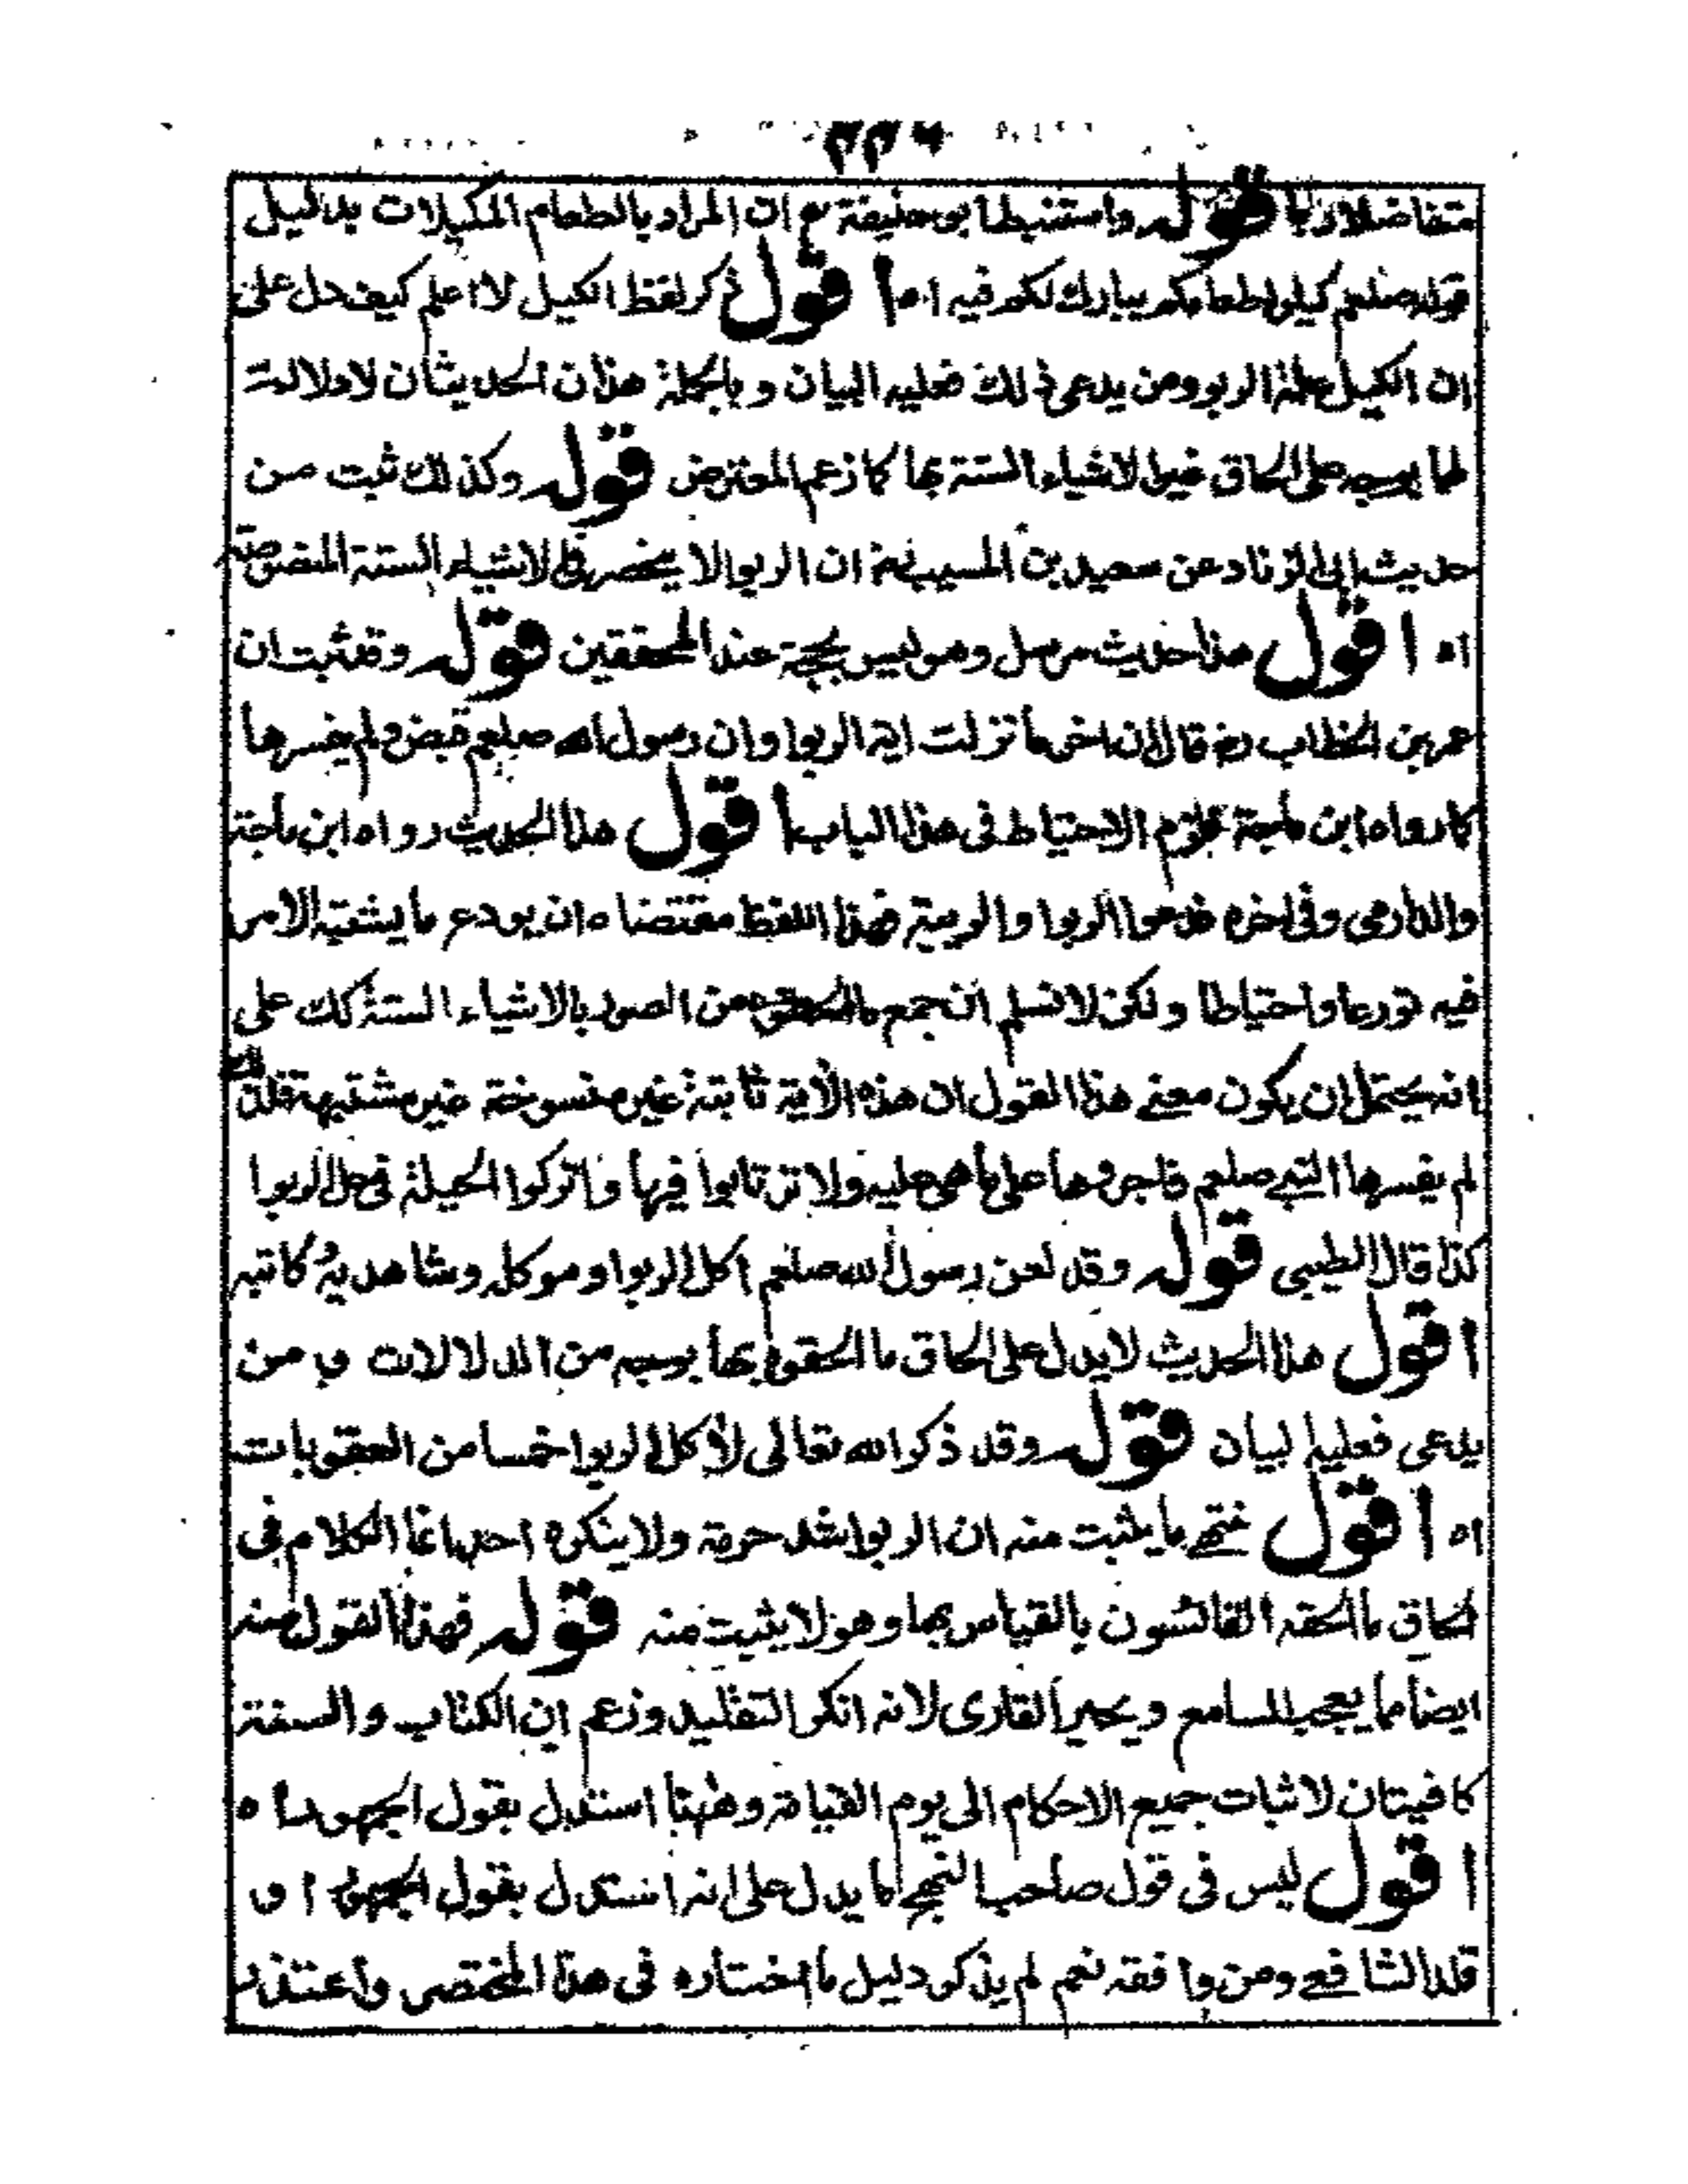 ٢٢٦
متفاضلا ربا قوله واستنبط ابو حنيفة رح ان المراد بالطعام المكيلات بدليل
قوله صلعم كيلوا طعامكم يبارك لكم فيه اه اقول ذكر لفظ الكيل لا اعلم كيف دل على
ان الكيل علة الربو ومن يدعى ذلك فعليه البيان وبالجملة هذان الحديثان لا دلالة
لهما بوجه على الحاق غير الاشياء الستة بها كما زعم المعترض قوله وكذلك ثبت من
حديث ابى الزناد عن سعيد بن المسيب ان الربوا لا ينحصر فى الاشياء الستة المنصوصة
اه اقول هذا حديث مرسل وهو ليس بحجة عند المحققين قوله وقد ثبت ان
عمر بن الخطاب رض قال ان اخر ما نزلت اية الربوا وان رسول الله صلعم قبض ولم يفسرها
كما رواه ابن ماجة فلزم الاحتياط فى هذا الباب اقول هذا الحديث رواه ابن ماجة
والدارمى وفى اخره فدعوا الربوا والريبة فهذا اللفظ مقتضاه ان يودع ما يشتبه الامر
فيه تورعا واحتياطا ولكن لا نسلم ان جميع ما الحقوه من الصور بالاشياء الستة كك على
انه يحتمل ان يكون معنى هذا القول ان هذه الاية ثابتة غير منسوخة غير مشتبهة فلذلك
لم يفسرها النبى صلعم فاجروها على ما هى عليه ولا ترتابوا فيها واتركوا الحيلة فى حل الربوا
كذا قال الطيبى قوله وقد لعن رسول الله صلعم اكل الربوا وموكله وشاهديه وكاتبه
اقول هذا الحديث لا يدل على الحاق ما الحقوه بها بوجه من الدلالات ومن
يدعى فعليه البيان قوله وقد ذكر الله تعالى لأكل الربوا خمسا من العقوبات
اه اقول نتهى ما يثبت منه ان الربوا شد حرمة ولا ينكره احد انما الكلام فى
الحاق ما الحقه القائسون بالقياس بها وهو لا يثبت منه قوله فهذا القول منه
ايضا مما يعجب السامع ويحير القارى لانه انكر التقليد وزعم ان الكتاب والسنة
كافيتان لاثبات جميع الاحكام الى يوم القيامة وههنا استدل بقول الجمهور اه
اقول ليس فى قول صاحب النهج ما يدل على انه استدل بقول الجمهور او
قلد الشافعى ومن وافقه نعم لم يذكر دليل ما اختاره فى هذا المختصر واعتذر